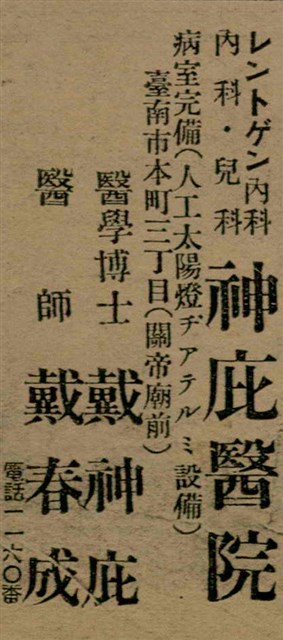 レントゲン内科
内科・兒科
神庇醫院
病室完備(人工太陽燈ヂアテルミ設備)
臺南市本町三丁目(關帝廟前)
醫學博士 戴神庇
醫師 戴春成
電話一一六〇番